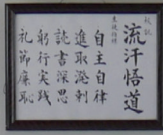 校訓
流汗悟道
自主自律
進取溌剌
読書深思
躬行実践
礼節廉恥